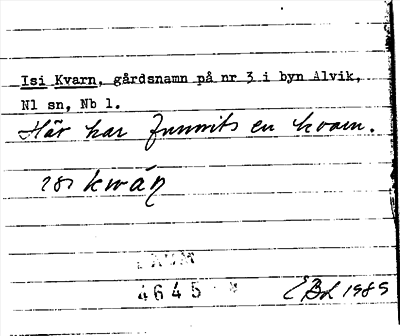 Isi Kvarn, gårdsnamn på nr 3 i byn Alvik,
Nl sn, Nb l.
Här har funnits en kvarn.
ɪsɪ kwáɳ
4645
EBL 1989